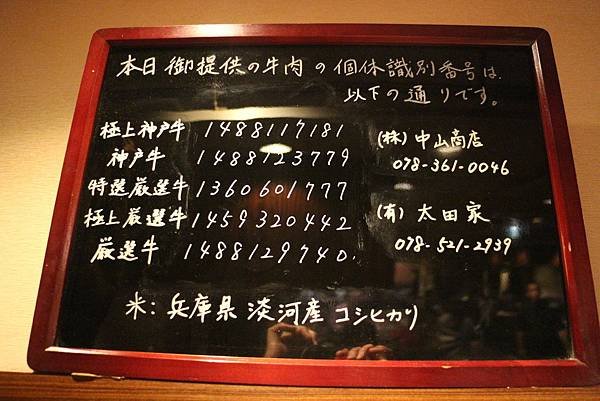 本日御提供の牛肉の個体識別番号は、
以下の通りです。
極上神戸牛 1488117181
神戸牛 1488123779
特選厳選牛 1360601777
極上厳選牛 1459320442
厳選牛 1488129740.
(株) 中山商店
078-361-0046
(有) 太田家
078-521-2939
米: 兵庫県 淡河産 コシヒカリ